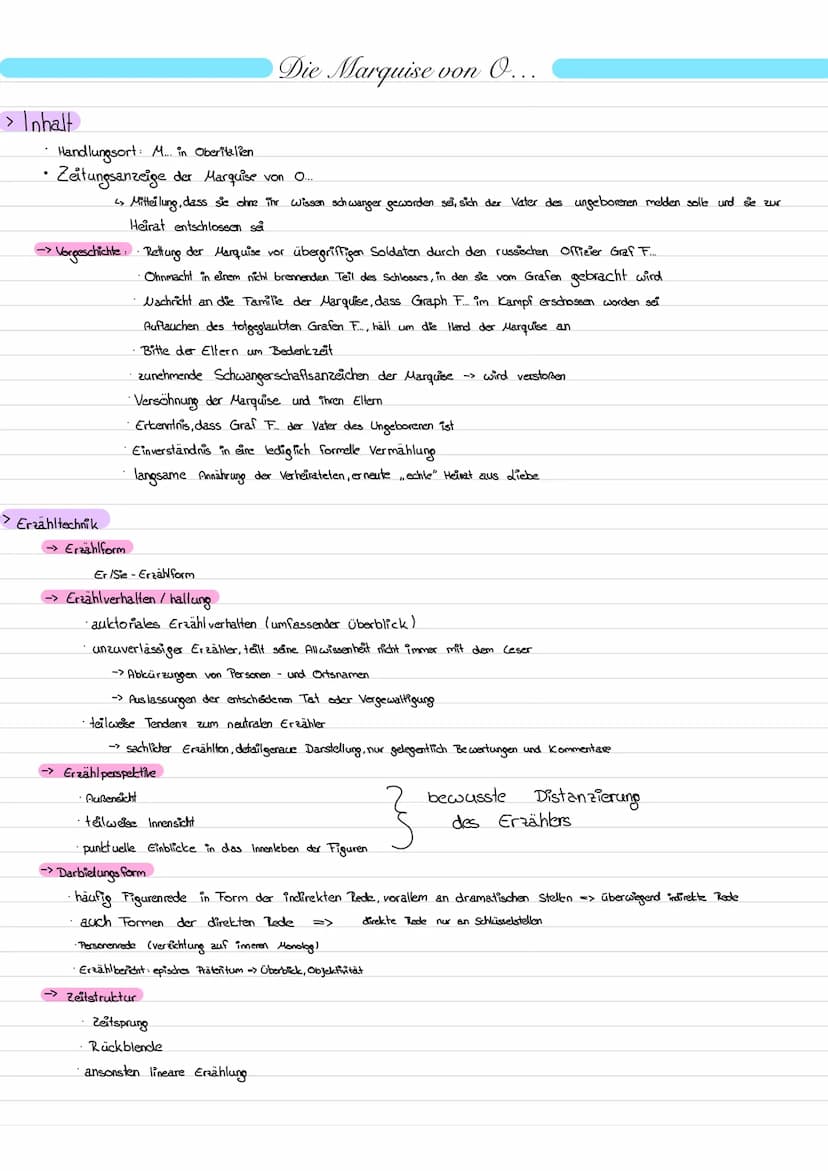 Die Marquise von O...
> Inhalt
· Handlungsort: M... in Oberitalien
· Zeitungsanzeige der Marquise von O...
↳ Mitteilung, dass sie ohne ihr Wissen schwanger geworden sei, sich der Vater des ungeborenen melden solle und sie zur
Heirat entschlossen sei
-> Vorgeschichte: · Rettung der Marquise vor übergriffigen Soldaten durch den russischen Offizier Graf F...
· Ohnmacht in einem nicht brennenden Teil des Schlosses, in den sie vom Grafen gebracht wird
· Nachricht an die Familie der Marquise, dass Graph F... im Kampf erschossen worden sei
Auftauchen des totgeglaubten Grafen F..., hält um die Hand der Marquise an
· Bitte der Eltern um Bedenkzeit
· zunehmende Schwangerschaftsanzeichen der Marquise -> wird verstoßen
· Versöhnung der Marquise und ihren Eltern
· Erkenntnis, dass Graf F... der Vater des Ungeborenen ist
· Einverständnis in eine lediglich formelle Vermählung
· langsame Annährung der Verheirateten, erneute „echte" Heirat aus Liebe
> Erzähltechnik
-> Erzählform
Er/Sie - Erzählform
-> Erzählverhalten / haltung
· auktoriales Erzählverhalten (umfassender Überblick)
· unzuverlässiger Erzähler, teilt seine Allwissenheit nicht immer mit dem Leser
-> Abkürzungen von Personen - und Ortsnamen
-> Auslassungen der entscheidenen Tat oder Vergewaltigung
· teilweise Tendenz zum neutralen Erzähler
-> sachlicher Erzählton, detailgenaue Darstellung, nur gelegentlich Bewertungen und Kommentare
-> Erzählperspektive
· Außensicht
· teilweise Innensicht
· punktuelle Einblicke in das Innenleben der Figuren
bewusste Distanzierung
des Erzählers
-> Darbietungsform
· häufig Figurenrede in Form der indirekten Rede, vorallem an dramatischen Stellen => überwiegend indirekte Rede
· auch Formen der direkten Rede => direkte Rede nur an Schlüsselstellen
· Personenrede (verzichtung auf inneren Monolog)
· Erzählbericht: episches Präteritum => Überblick, Objektivität
-> Zeitstruktur
· Zeitsprung
· Rückblende
· ansonsten lineare Erzählung